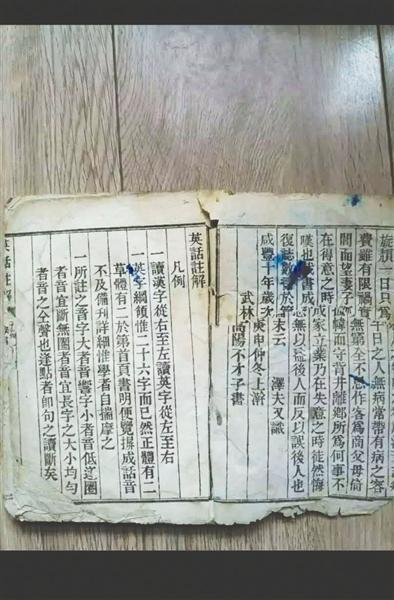 旋頹一日只為千日之人無病常帶有病之容
費雖有限禍實無全不忍作客為商父母倚
閭而望妻子幃而守背井離鄉所為何事不
在得意之時成家立業乃在失意之時徒然悔
嘆也茲書成無以後人而反以誤後人也
復誌數於末云 澤夫又識
咸豐十年歲次庚申仲冬上澣
武林高陽不才子書
英話註解
凡例
一讀漢字從右至左讀英字從左至右
一英字綱領惟二十六字而已然正體有二
草體有二於第首頁書明便覽拼成話音
不及備刊詳細惟學者自揣摩之
一所註之音字大者音響字小者音低逐圈
者音宜斷無圈者音宜長字之大小均勻
者音之全聲也逢點者即句之讀斷矣
英話註解